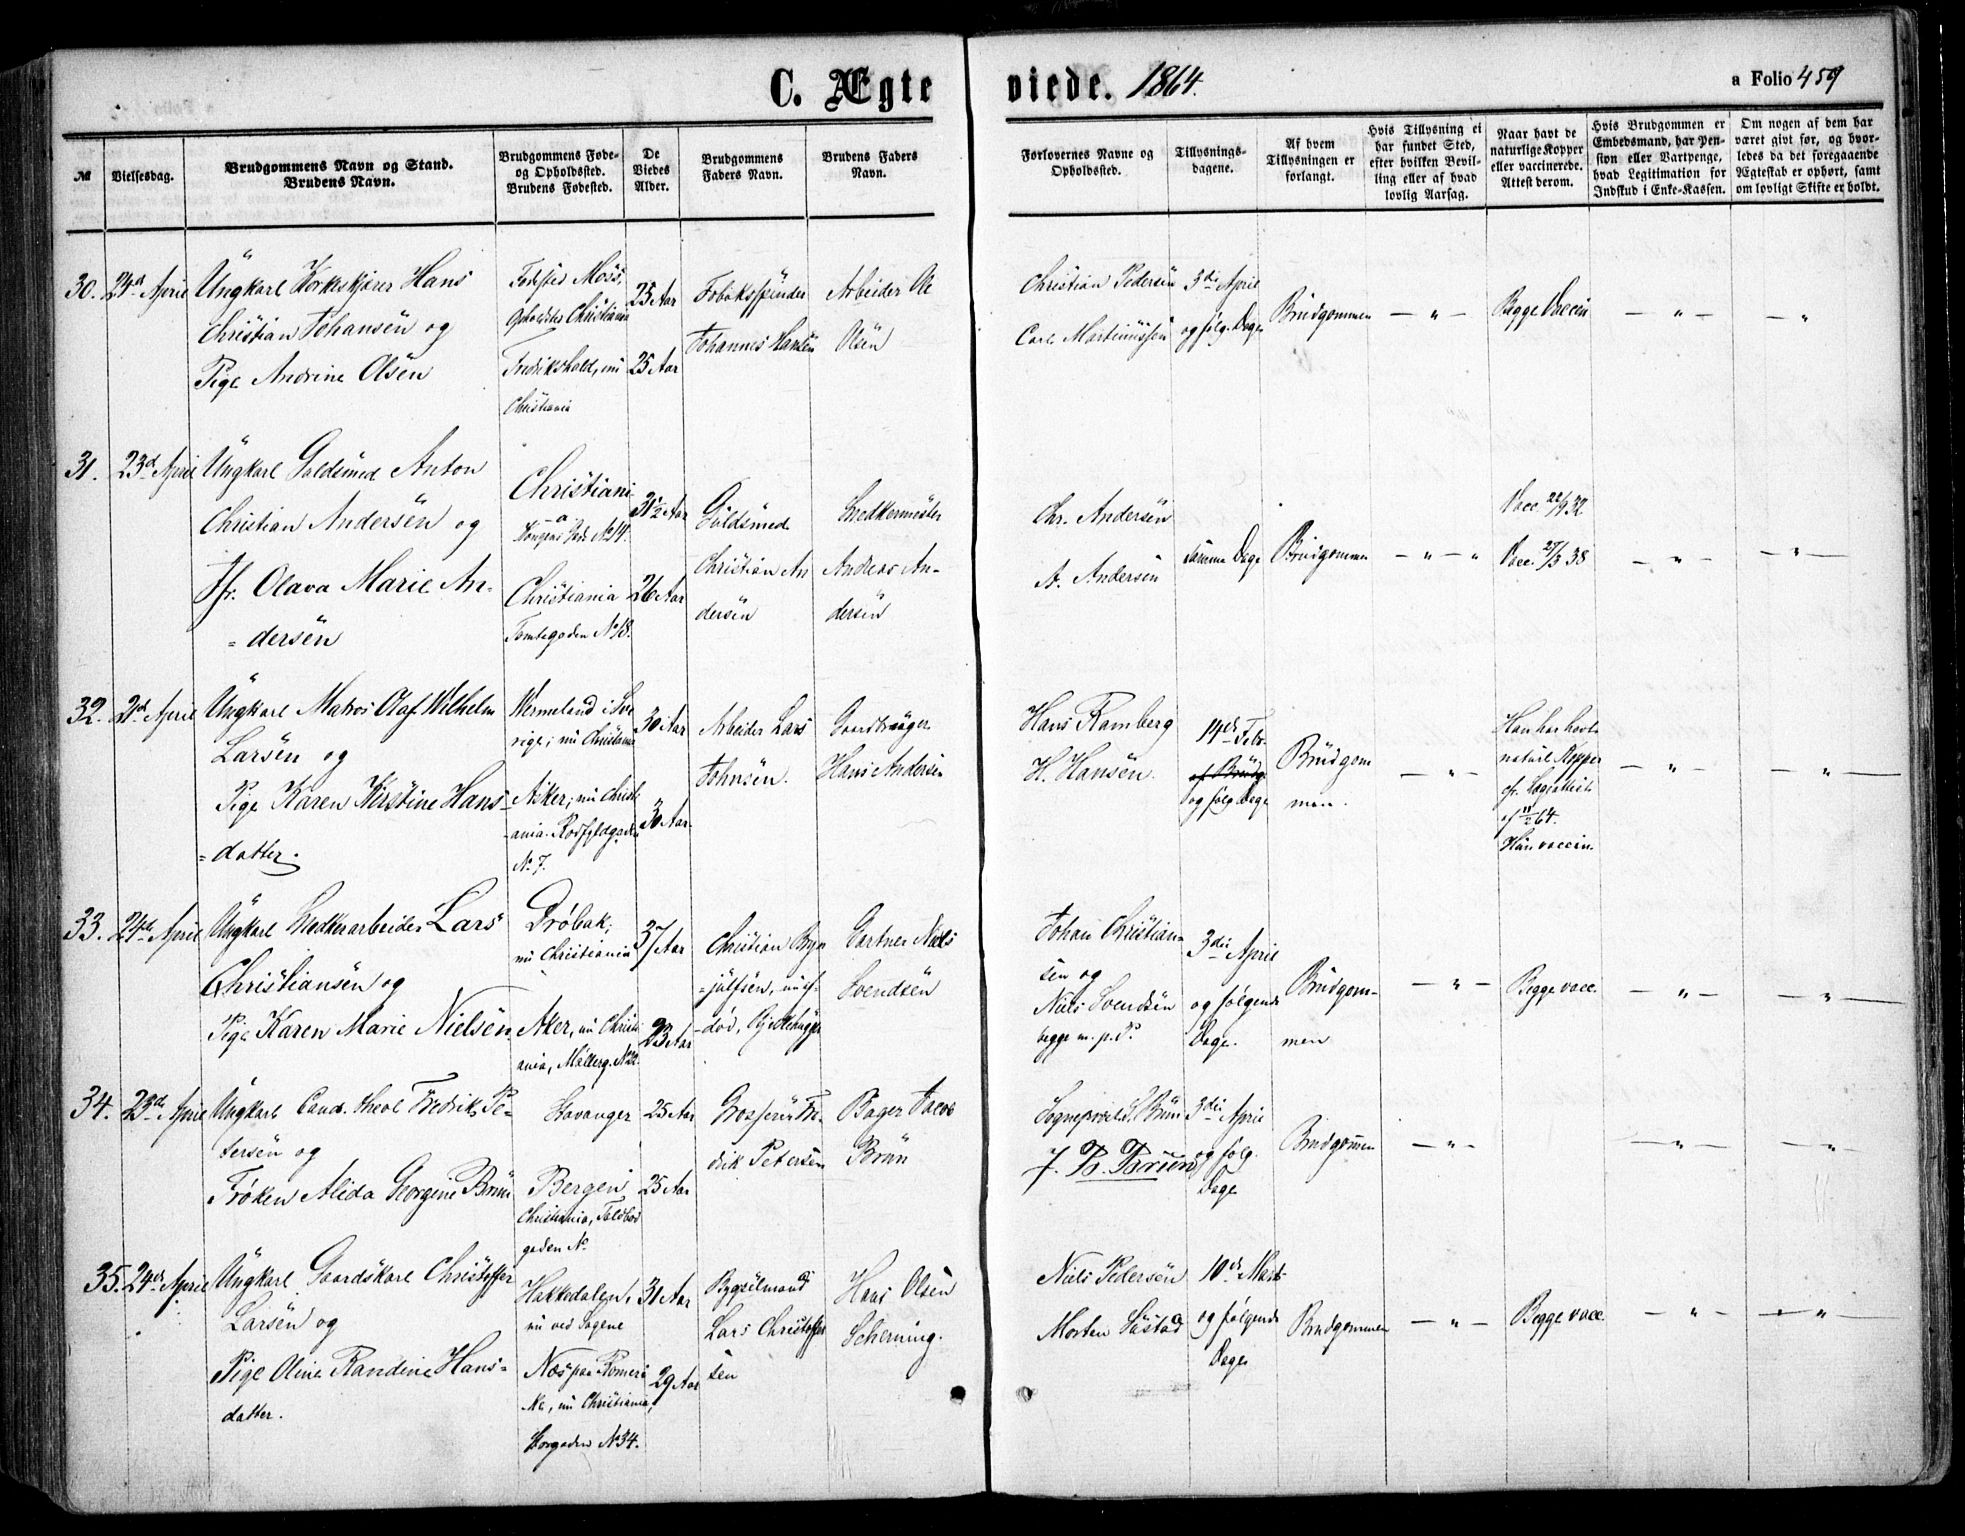 C. Ægte viede. 1864.
a Folio 459
№
Vielsesdag.
Brudgommens Navn og Stand.
Brudens Navn.
Brudgommens Føde-
og Opholdssted.
Brudens Fødested.
De
Viedes
Alder.
Brudgommens
Faders Navn.
Brudens Faders
Navn.
Forlovernes Navne og
Opholdssted.
Tillysnings-
dagene.
Af hvem
Tillysningen er
forlangt.
Hvis Tillysning ei
har fundet Sted,
efter hvilken Bevil-
ling eller af hvad
lovlig Aarsag.
Naar havt de
naturlige Kopper
eller vaccinerede.
Attest derom.
Hvis Brudgommen er
Embedsmand, har Pen-
sion eller Vartpenge,
hvad Legitimation for
Indskud i Enke-Kassen.
Om nogen af dem har
været givt før, og hvor-
ledes da det foregaaende
Ægteskab er ophørt, samt
om lovligt Skifte er holdt.
30.
24d April
Ungkarl Korkeskjærer Hans
Christian Johansen og
Pige Andrine Olsen
Fødested Moss,
Opholdste Christiania
Fredrikshald, nu
Christiania
25 Aar
25 Aar
Johannes Hansen
Arbeider Ole
Olsen
Christian Pedersen
Carl Martinussen
3die April
og følg. Dage
Brudgommen
— " —
Begge Vaccin
— " —
— "
31.
23d April
Ungkarl Guldsmed Anton
Christian Andersen og
Jfr. Olava Marie An-
= dersen
Christiani
- a -
Kongens Gade No 14.
Christiania
Tomtegaden No 18.
31 1/2 Aar
26 Aar
Guldsmed
Christian An
dersen
Snedkermester
Andreas An-
dersen
Chr. Andersen
A. Andersen
samme Dage
Brudgommen
— " — "
Vacc. 22/9 32
Vacc. 27/3 38
— " —
— " —
32.
2d April
Ungkarl Matros Olaf Wilhelm
Larsen og
Pige Karen Kirstine Hans-
= datter.
Wermeland i Sve
rige; nu Christiania
Asker; nu Christi
-ania. Rødfyldgaden
No 7.
30 Aar
30 Aar.
Arbeider Lars
Johnsen.
Gaardbruger
Hans Andersen
Hans Ramberg
H. Hansen.
14de Febr.
og følg Dage
Brudgom
men.
— " —
Han har havt
naturl Kopper
cfr. Lægeattest
af 11/2 64.
Hun vaccin.
— " —
— " —
33.
24de April
Ungkarl Snedkerarbeider Lars
Christiansen og
Pige Karen Marie Nielsen
Drøbak;
nu Christiania
Aker, nu Christi-
ania, Møllerg. No 22.
37 Aar
23 Aar
Christian Bryn
= julfsen,
Gartner Niels
Svendsen
Johan Christian-
sen og
Niels Svendsen
begge m. p. P.
3die April
og følgende
Dage.
Brudgom-
men
— " —
Begge vacc.
— " —
— " —
34.
23de April
Ungkarl Cand. theol Fredrik Pe-
tersen og
Frøken Alida Georgine Bruun
Stavanger
Bergen
Christiania, Toldbod
gaden No
25 Aar
25 Aar
Grosserer Fre-
drik Petersen
Bager Jacob
Bruun
J. B. Bruun
3die April
og følg.
Dage
Brudgommen
— " —
— " —
— " —
35.
24de April
Ungkarl Gaardskarl Christoffer
Larsen og
Pige Oline Randine Hans-
datter.
Hakkedalen,
nu ved Sagene
Næs paa Romeri
ke, nu Christiania,
No 34.
31 Aar
29 Aar
Bygselmand
Lars Christoffer
sen
Hans Olsen
Scherning.
Niels Pedersen
Morten Sæstad
10de Mart
og følgende
Dage
Brudgommen
— " —
Begge vacc.
— " —
— " —